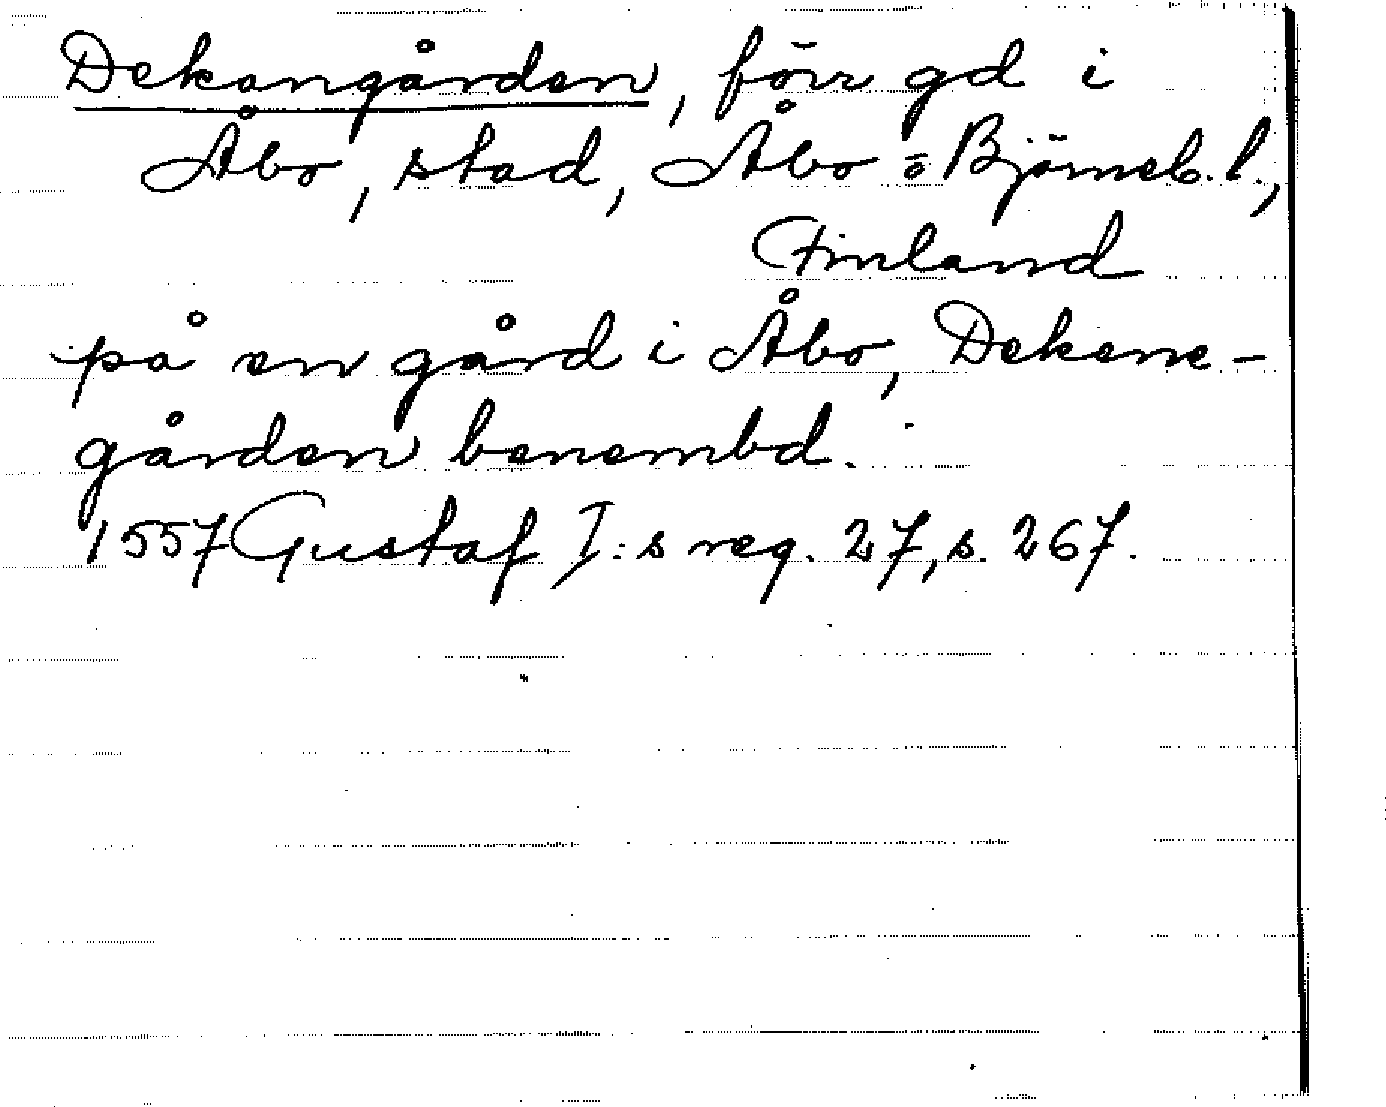 Dekangården, förr gd i
Åbo, stad, Åbo o Björneb. l.,
Finland
på en gård i Åbo, Dekene-
gården benembd.
1557 Gustaf I:s reg. 27, s. 267.